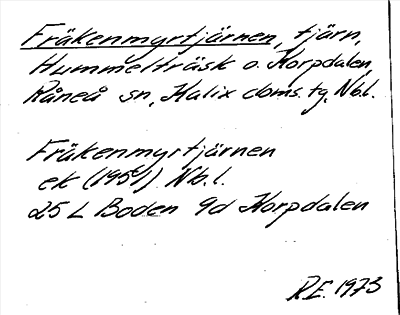 Fräkenmyrtjärnen, tjärn,
Hummelträsk o. Korpdalen,
Råneå sn, Kalix doms. tg, Nb.l.
Fräkenmyrtjärnen
ek (1951) Nb.l.
25 L Boden 9d Korpdalen
R.E. 1973